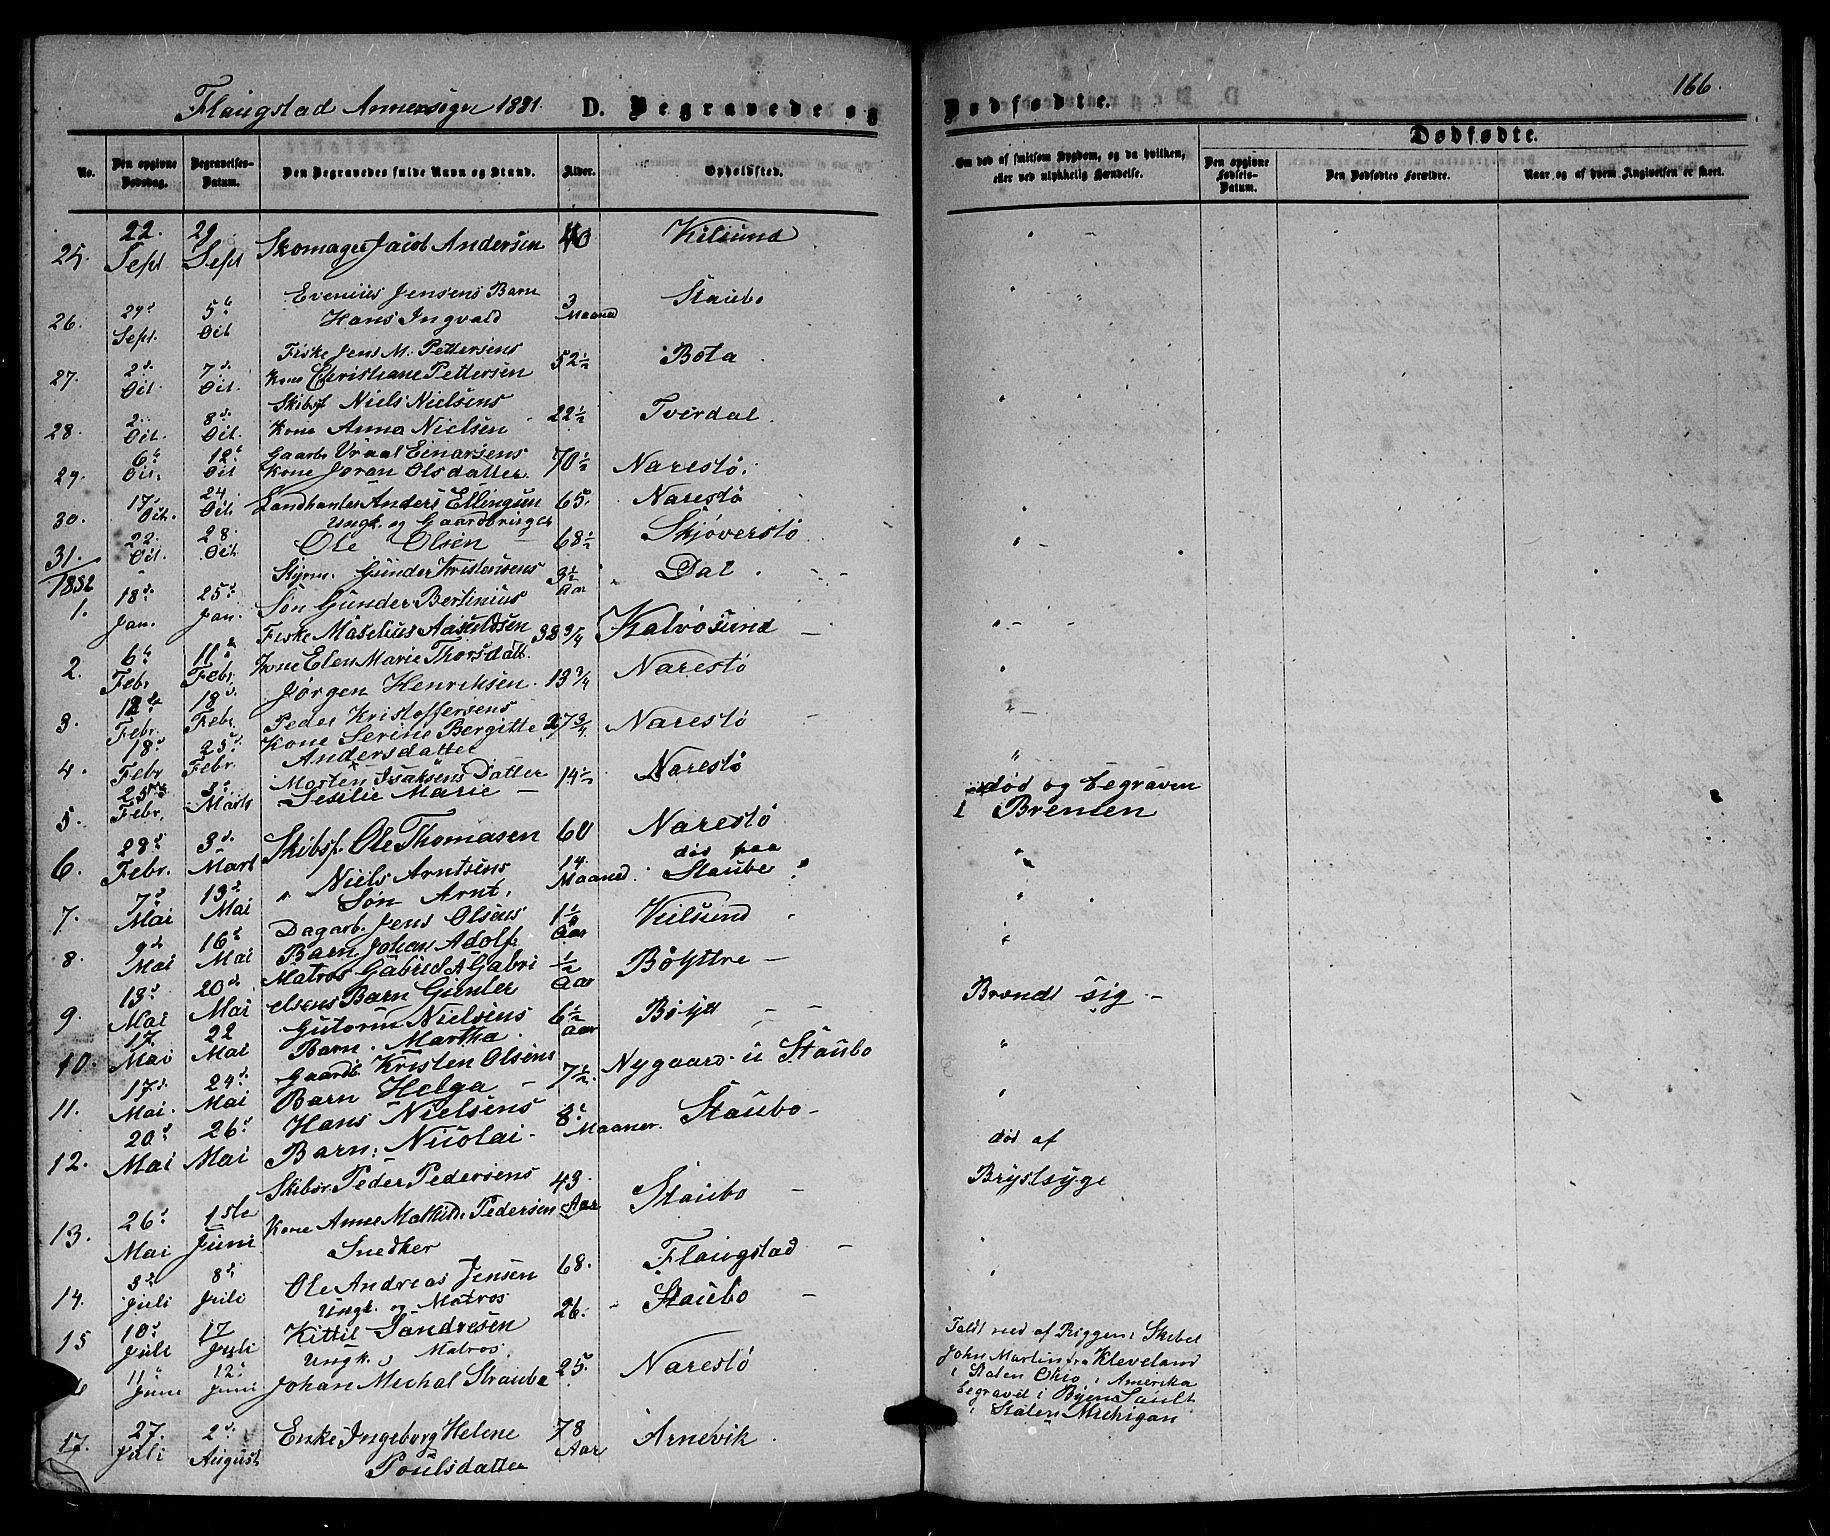 Flaugstad Annexsogn 1881. D. Begravede og Dødfødte. 166.
Dødfødte.
No. Den opgivne Dødsdag. Begravelses-Datum. Den Begravedes fulde Navn og Stand. Alder. Opholdsted. Om død af smitsom Sygdom, og da hvilken, eller ved ulykkelig Hændelse. Den opgivne Fødsels-Datum. Den Dødfødtes Forældre. Naar, og af hvem Angivelsen er skeet.
25. 22. Sept 29 Sept Skomager Jacob Andersen 40 Kilsund
26. 29d Sept. 5te Oct Evenius Jensens Barn
Hans Ingvald 3 Maaned Staubo
27. 2d Oct 7d Oct. Fiske Jens M. Pettersens
Kone Christiane Pettersen 52½ Bota
28. 2. Oct. 8d Oct. Skibsf Niels Nielsens
Kone Anna Nielsen 22½ Tverdal
29. 6te Oct. 12te Oct Gaarbr Vraal Einarsens
Kone Joran Olsdatter 70½ Narestø
30. 17d Oct. 24 Oct Landhanler Anders Ellingsen 65. Narestø
31. 22. Oct. 28. Oct Ungk. og Gaardbruger
Ole Olsen 68½ Skjøverstø
1882
1. 18d Jan. 25d Jan. Gunder Kristensens
Søn Gunder Bertinius 3½ Aar Dal
2. 6te Febr 11te Febr Fiske Maselius Aasuldsen
Kone Elen Marie Thorsdatt. 38¾ Kalvøsund
3. 12te Febr. 18d Febr. Jørgen Henriksen 13¾ Narestø
4. 18d Febr 25d Febr Peder Kristoffersens
Kone Serine Bergitte
Andersdatter 27¾ Narestø
5. 25d Febr. 3d Marts Morten Isaksens Datter
Sesilie Marie 14½ Narestø
6. 28d Febr. 3d Mart Skibsf. Ole Thomasen 60 Narestø død og begraven
i Bremen
7. 7d Mai 13d Mai Niels Arntsens
Søn Arnt. 14. Maaned. død paa
Staubo
8. 9d Mai 16d Mai Dagarb. Jens Olsens
Barn Johan Adolf 1¼ Aar Kilsund
9. 13d Mai 20d Mai Matros Gabriel A Gabri
elsens Barn Gunler ½ Aar Bøyttre
10. 17. Mai 22 Mai Gutorm Nielsens
Barn. Martha. 6½ Aar Bøyd Brændt sig
11. 17d Mai. 24d Mai Gaardb Kristen Olsens
Barn Helga 7½ Nygaard u Staubo
12. 20d Mai 26d Mai Hans Nielsens
Barn: Nicolai 8 Maaner. Staubo
13. 26d Mai 1ste Juni Skibsr. Peder Pedersens
Kone Anne Mathild. Pedersen 43. Aar Staubo død af
Brystsyge
14. 3d Juli 8d Juli Snedker
Ole Andreas Jensen 68. Flaugstad
15 10d Juli 17 Juli Ungk. og Matros
Kittil Tandresen 26. Staubo
11te Juni 12te Juni Ungk. Matros.
Johan Michal Straube 25. Narestø Faldt ned af Riggen i Skibet
John Martin fra Kleveland
i Staten Ohio i Amerika
begravet i Byen Sault
i Staten Michigan
17. 27. Juli 2d August Enke Ingeborg Helene
Poulsdatter 78 Aar Arnevik